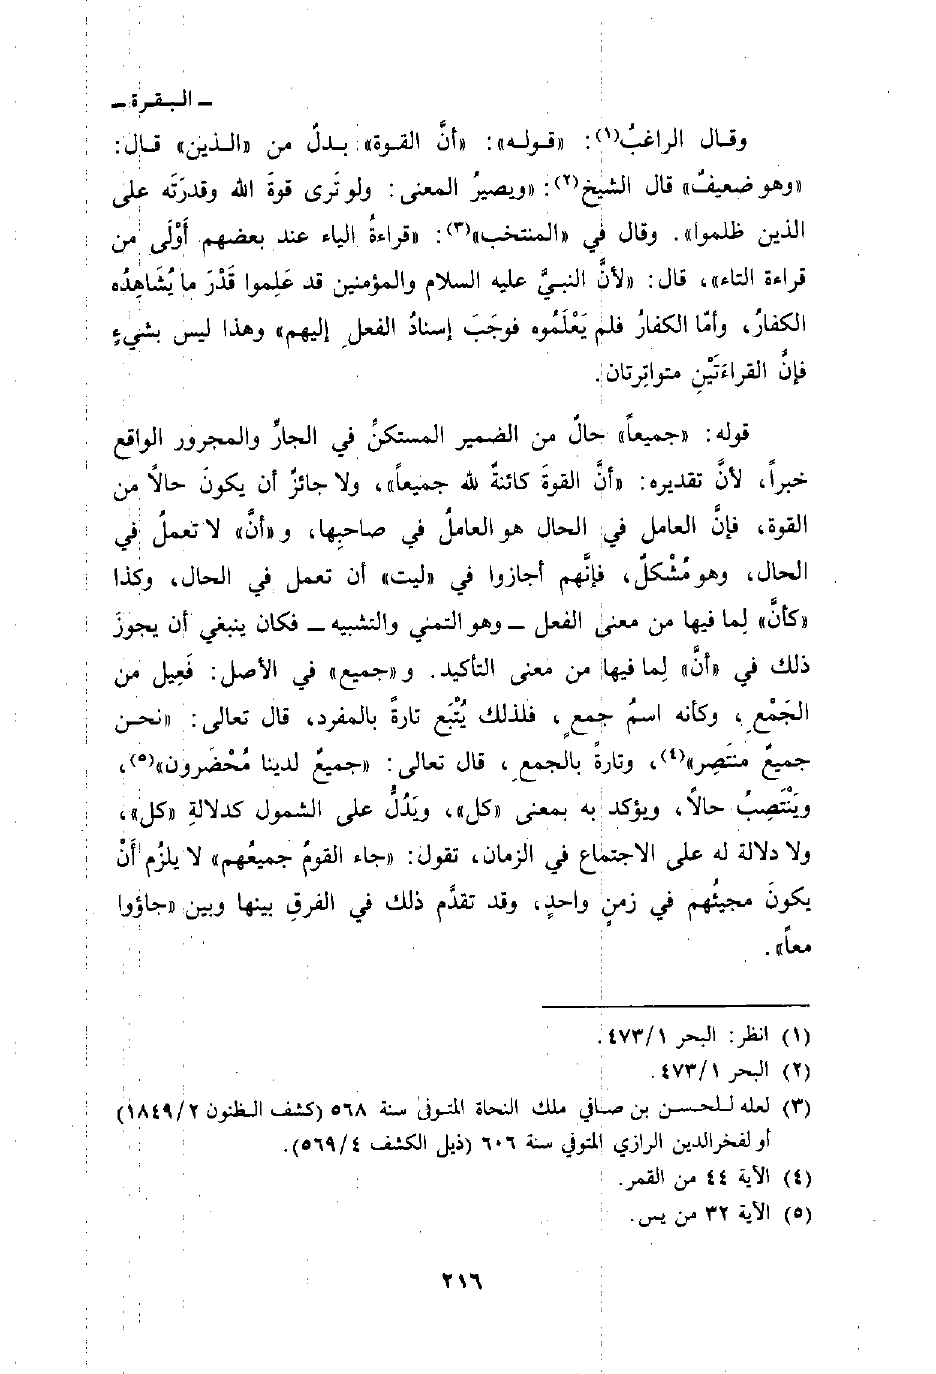 ـ البقرة ـ
وقال الراغبُ(١): «قوله»: «أنَّ القوة» بدلٌ من «الذين» قال:
«وهو ضعيفٌ» قال الشيخ(٢): «ويصيرُ المعنى: ولو تَرى قوةَ الله وقدرَتَه على
الذين ظلموا». وقال في «المنتخب»(٣): «قراءةُ الياء عند بعضهم أَوْلَى من
قراءة التاء»، قال: «لأنَّ النبيَّ عليه السلام والمؤمنين قد عَلِموا قَدْرَ ما يُشَاهِدُه
الكفارُ، وأمّا الكفارُ فلم يَعْلَمُوه فوجَبَ إسنادُ الفعلِ إليهم» وهذا ليس بشيءٍ
فإنَّ القراءَتَيْنِ متواتِرتان.
قوله: «جميعاً» حالٌ من الضمير المستكنِّ في الجارِّ والمجرور الواقع
خبراً، لأنَّ تقديره: «أنَّ القوةَ كائنةٌ لله جميعاً»، ولا جائزٌ أن يكونَ حالاً من
القوة، فإنَّ العامل في الحال هو العاملُ في صاحبِها، و«أنَّ» لا تعملُ في
الحال، وهو مُشْكلٌ، فإنَّهم أجازوا في «ليت» أن تعمل في الحال، وكذا
«كأنَّ» لِما فيها من معنى الفعل ـ وهو التمني والتشبيه ـ فكان ينبغي أن يجوزَ
ذلك في «أنَّ» لِما فيها من معنى التأكيد. و«جميع» في الأصل: فَعِيل من
الجَمْعِ، وكأنه اسمُ جمعٍ، فلذلك يُتْبَع تارةً بالمفرد، قال تعالى: «نحن
جميعٌ منتَصِر»(٤)، وتارةً بالجمعِ، قال تعالى: «جميعٌ لدينا مُحْضَرون»(٥)،
ويَنْتَصِبُ حالاً، ويؤكد به بمعنى «كل»، ويَدُلُّ على الشمول كدلالةِ «كل»،
ولا دلالة له على الاجتماع في الزمان، تقول: «جاء القومُ جميعُهم» لا يلزُم أَنْ
يكونَ مجيئُهم في زمنٍ واحدٍ، وقد تقدَّم ذلك في الفرقِ بينها وبين «جاؤوا
معاً».
(١) انظر: البحر ٤٧٣/١.
(٢) البحر ٤٧٣/١.
(٣) لعله للحسن بن صافي ملك النحاة المتوفى سنة ٥٦٨ (كشف الظنون ١٨٤٩/٢)
أو لفخرالدين الرازي المتوفي سنة ٦٠٦ (ذيل الكشف ٥٦٩/٤).
(٤) الآية ٤٤ من القمر.
(٥) الآية ٣٢ من يس.
٢١٦